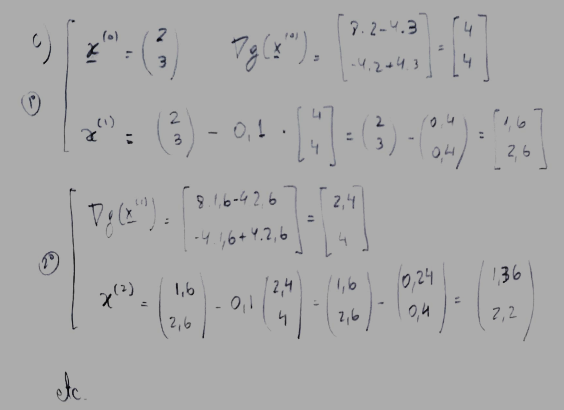 c) x^(0) = (2 3) ∇g(x^(0)) = [8.2-4.3 -4.2+4.3] = [4 4]
1º x^(1) = (2 3) - 0,1 · [4 4] = (2 3) - (0,4 0,4) = [1,6 2,6]
∇g(x^(1)) = [8.1,6-4.2,6 -4.1,6+4.2,6] = [2,4 4]
2º x^(2) = (1,6 2,6) - 0,1 (2,4 4) = (1,6 2,6) - (0,24 0,4) = (1,36 2,2)
etc.